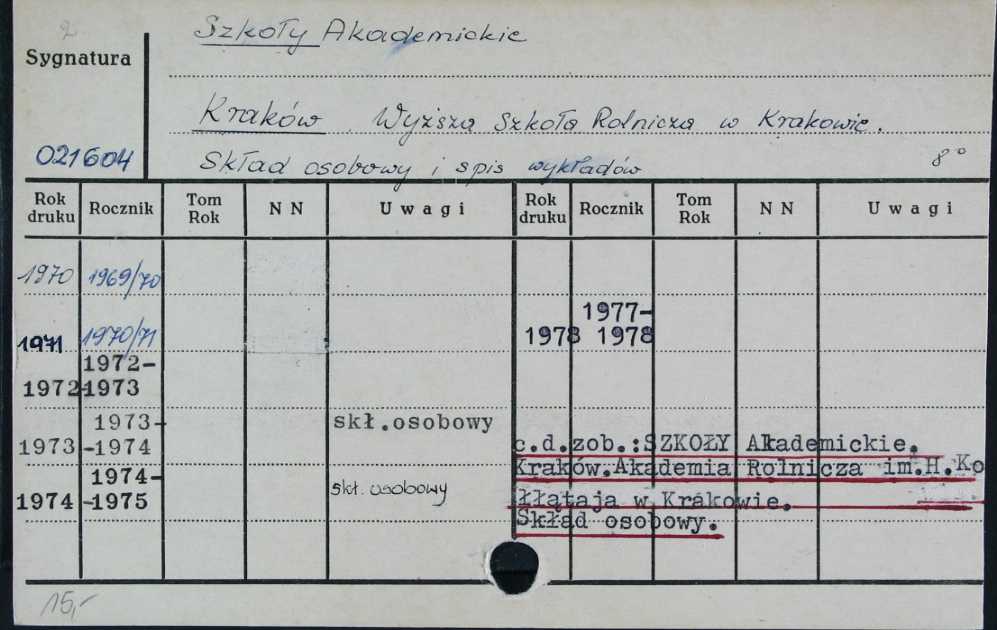 2
Szkoły Akademickie
Sygnatura
Kraków Wyższa Szkoła Rolnicza w Krakowie.
021604 Skład osobowy i spis wykładów 8°
Rok druku Rocznik Tom Rok N N Uwagi Rok druku Rocznik Tom Rok N N Uwagi
1970 1969/70
1971 1970/71
1972-
1972-1973
1973- skł.osobowy
1973 -1974
1974- skł. osobowy
1974 -1975
1977-
1978 1978
c.d.zob.:SZKOŁY Akademickie.
Kraków.Akademia Rolnicza im.H.Ko
łłątaja w Krakowie.
Skład osobowy.
15,-